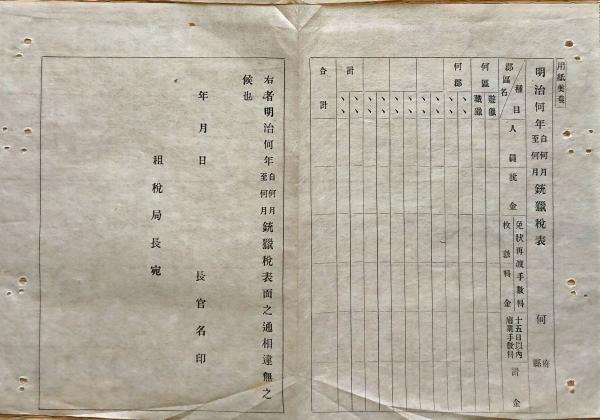 用紙美濃
明治何年自何月至何月銃獵稅表 何府縣
郡區名 種目 人員 稅金 免狀再渡手數料 枚數 料金 十五日以內廢業手數料 計金
何區 遊獵
職獵
何郡 、、
、、
計 、、
、、
合計
右者明治何年自何月至何月銃獵稅表面之通相違無之
候也
年月日 長官名印
租稅局長宛